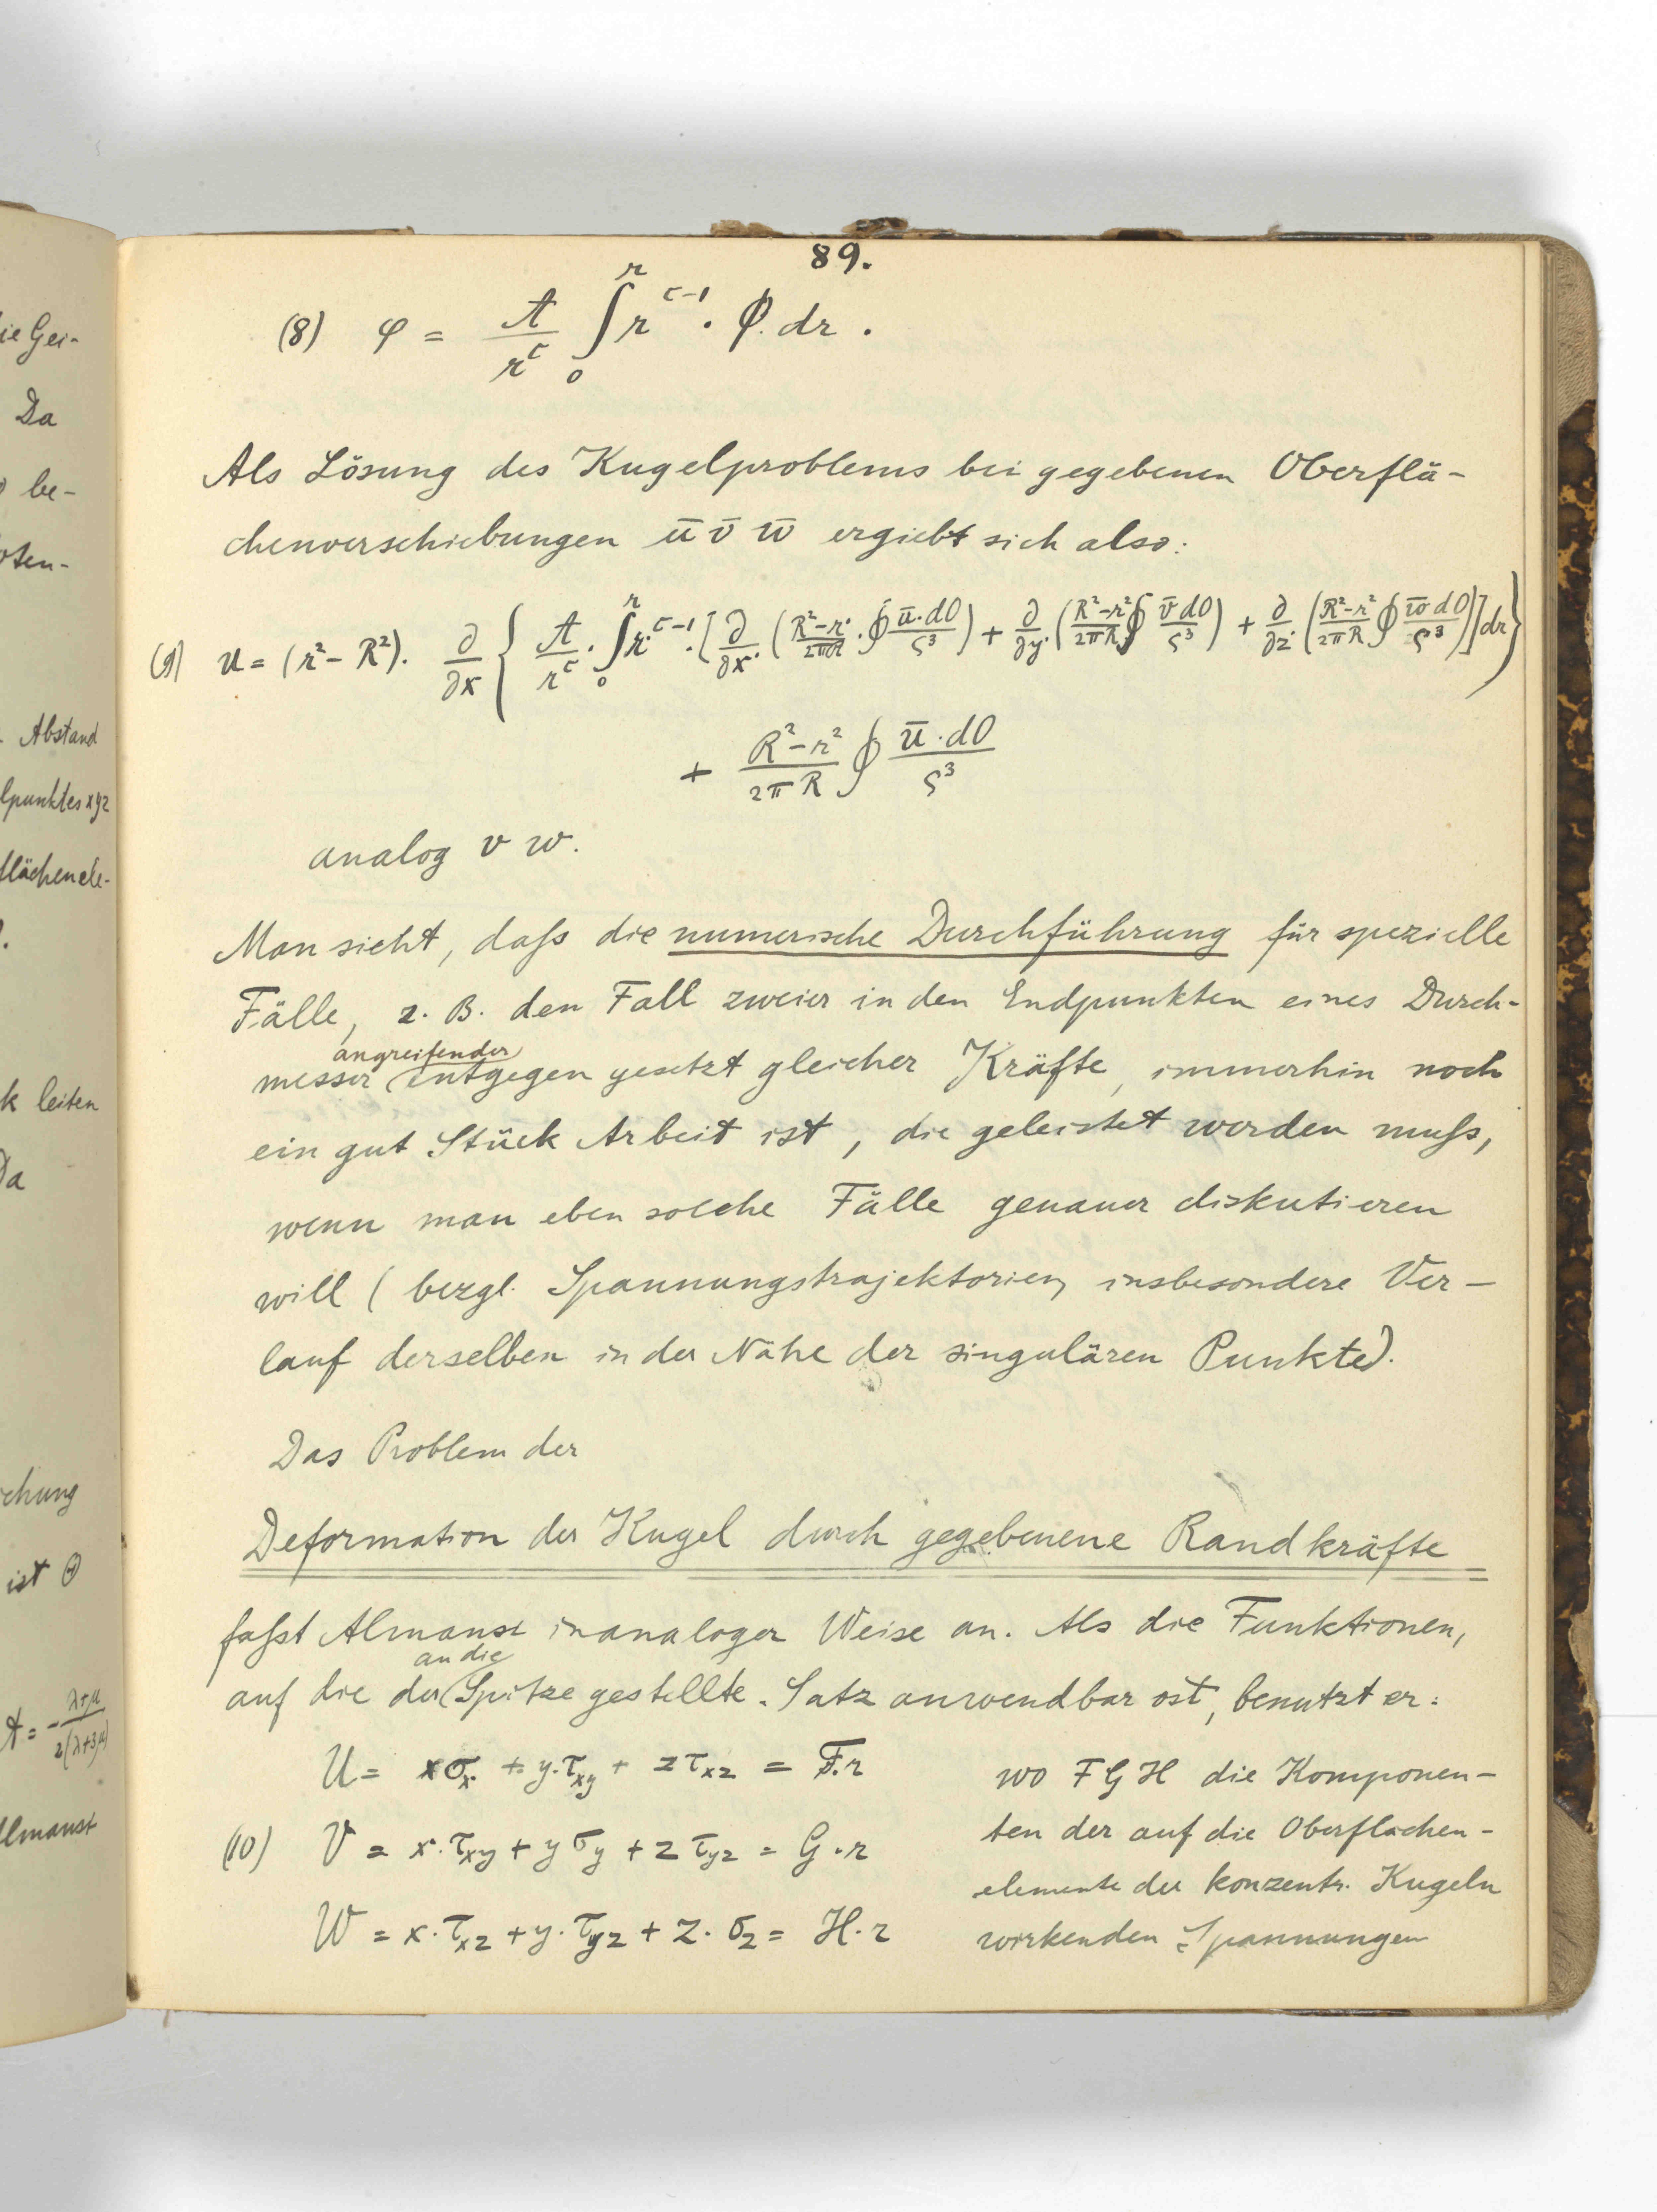 ie Gei-
Da
be-
oten-
Abstand
lpunktes xyz
flächenele-
k leiten
Da
chung
ist Θ
A = - λ+μ / 2(λ+3μ)
Almansi
89.
(8) φ = A/r^c ∫₀^r r^{c-1} · Φ · dr .
Als Lösung des Kugelproblems bei gegebenen Oberflä-
chenverschiebungen ū v̄ w̄ ergiebt sich also:
(9) u = (r² - R²) · ∂/∂x { A/r^c · ∫₀^r r^{c-1} · [ ∂/∂x · ( R²-r²/2πR · ∮ ū·dO/ς³ ) + ∂/∂y · ( R²-r²/2πR ∮ v̄ dO/ς³ ) + ∂/∂z · ( R²-r²/2πR ∮ w̄ dO/ς³ ) ] dr }
+ R²-r²/2πR ∮ ū·dO/ς³
analog v w.
Man sieht, daſs die numerische Durchführung für spezielle
Fälle, z. B. den Fall zweier in den Endpunkten eines Durch-
angreifender
messer entgegen gesetzt gleicher Kräfte, immerhin noch
ein gut Stück Arbeit ist, die geleistet werden muſs,
wenn man eben solche Fälle genauer diskutieren
will (bezgl. Spannungstrajektorien, insbesondere Ver-
lauf derselben in der Nähe der singulären Punkte).
Das Problem der
Deformation der Kugel durch gegebenene Randkräfte
faſst Almansi in analoger Weise an. Als die Funktionen,
an die
auf die der Spitze gestellte Satz anwendbar ist, benutzt er:
U = xσx + y·τxy + zτxz = F·r
(10) V = x·τxy + yσy + zτyz = G·r
W = x·τxz + y·τyz + z·σz = H·r
wo F G H die Komponen-
ten der auf die Oberflächen-
elemente der konzentr. Kugeln
wirkenden Spannungen